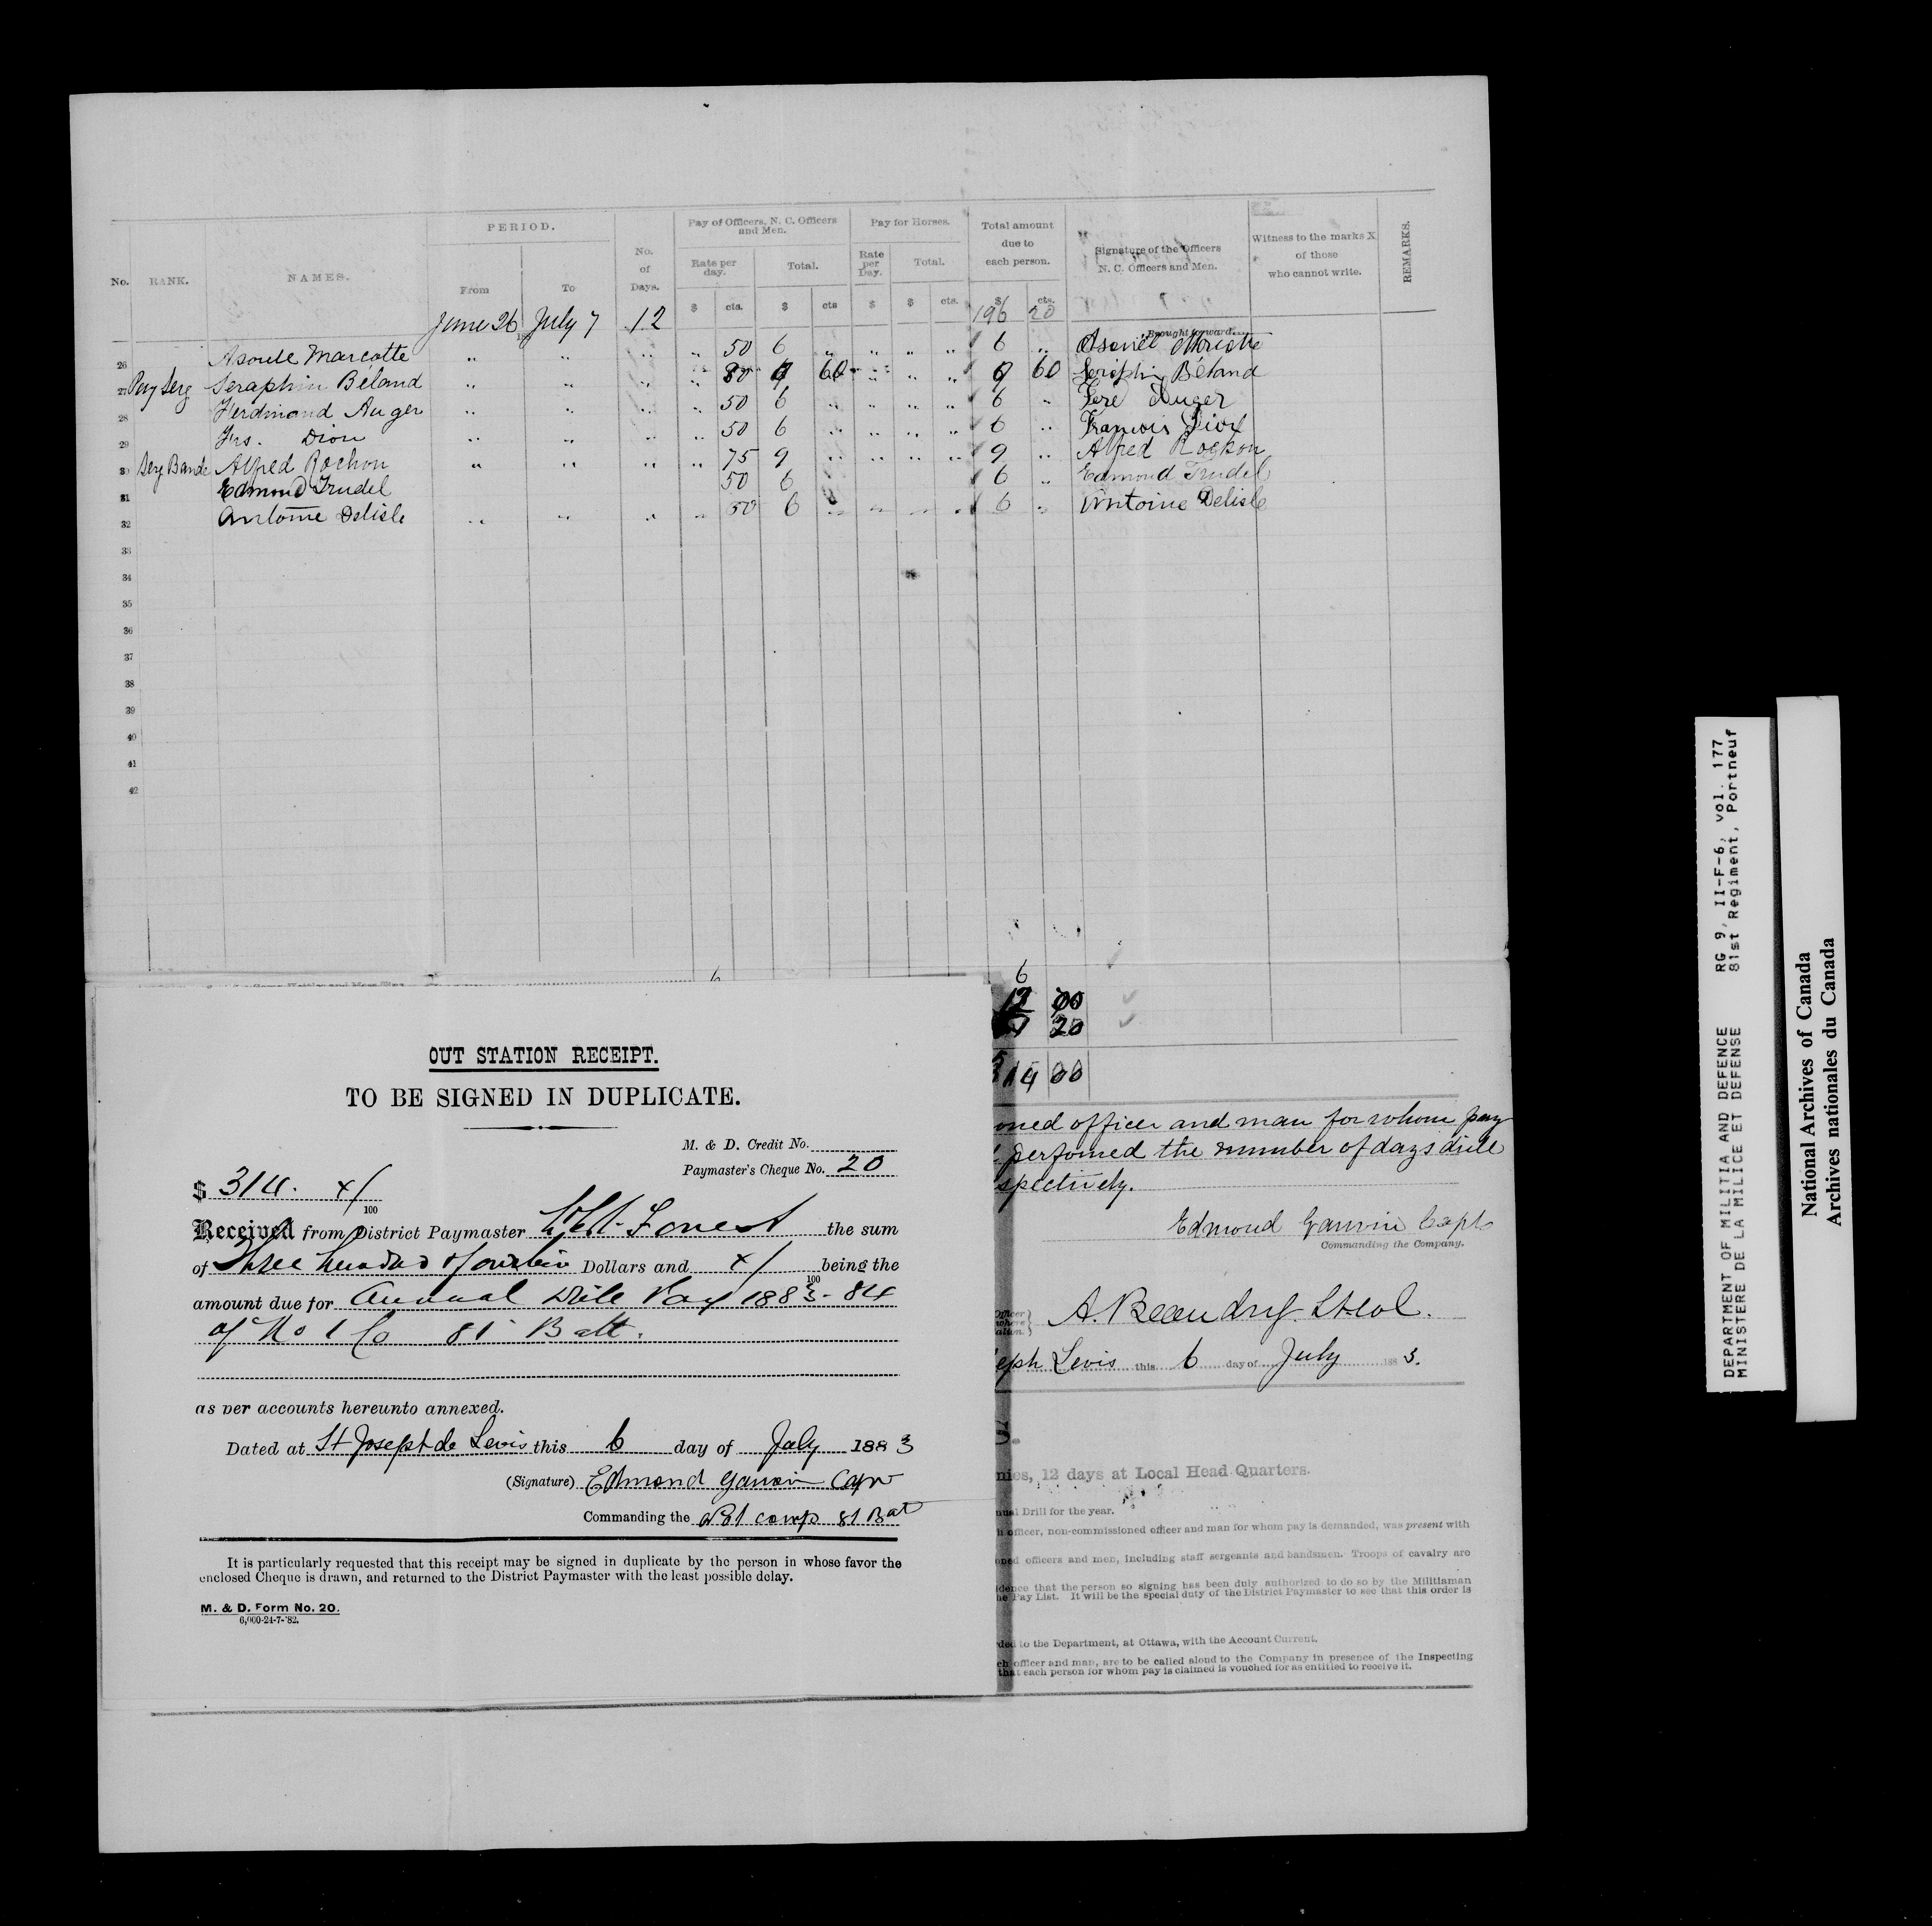 No. RANK. NAMES. PERIOD. From To No. of Days. Pay of Officers, N. C. Officers and Men. Rate per day. $ cts. Total. $ cts Pay for Horses. Rate per Day. $ Total. $ cts. Total amount due to each person. $ cts. Signature of the Officers N. C. Officers and Men. Witness to the marks X of those who cannot write. REMARKS.
June 26 July 7 12 196 20 Brought forward
26 Marcotte " " " " 50 6 " " " " 6 "
27 Pay Serg Seraphin Béland " " " " 80 9 60 " " " 9 60 Seraphin Béland
28 Ferdinand Auger " " " " 50 6 " " " " 6 " Auger
29 Frs. Dion " " " " 50 6 " " " " 6 " Francois Dion
30 Serg Band Alfred Rochon " " " " 75 9 " " " " 9 " Alfred Rochon
31 Edmond Trudel 50 6 6 " Edmond Trudel
32 Antoine Delisle " " " " 50 6 " " " " 6 " Antoine Delisle
33
34
35
36
37
38
39
40
41
42
6
6
20
00
OUT STATION RECEIPT.
TO BE SIGNED IN DUPLICATE.
M. & D. Credit No.
Paymaster's Cheque No. 20
$ 314. x/100
Received from District Paymaster Forrest the sum
of Three hundred & fourteen Dollars and x/100 being the
amount due for Annual Drill Pay 1883-84
of No 1 Co 81 Batt.
as per accounts hereunto annexed.
Dated at St Joseph de Levis this 6 day of July 1883
(Signature) Edmond Gauvin Capt
Commanding the No 1 comp 81 Bat
It is particularly requested that this receipt may be signed in duplicate by the person in whose favor the
enclosed Cheque is drawn, and returned to the District Paymaster with the least possible delay.
M. & D. Form No. 20.
6,000-24-7-'82.
oned officer and man for whom pay
perfomed the number of days drill
spectively.
Edmond Gauvin Capt
Commanding the Company.
A. Beaudry. Lt Col.
eph Levis this 6 day of July 1883.
nies, 12 days at Local Head Quarters.
nual Drill for the year.
h officer, non-commissioned officer and man for whom pay is demanded, was present with
oned officers and men, including staff sergeants and bandsmen. Troops of cavalry are
idence that the person so signing has been duly authorized to do so by the Militiaman
he Pay List. It will be the special duty of the District Paymaster to see that this order is
rded to the Department, at Ottawa, with the Account Current.
ch officer and man, are to be called aloud to the Company in presence of the Inspecting
that each person for whom pay is claimed is vouched for as entitled to receive it.
DEPARTMENT OF MILITIA AND DEFENCE RG 9, II-F-6, vol. 177
MINISTERE DE LA MILICE ET DEFENSE 81st Regiment, Portneuf
National Archives of Canada
Archives nationales du Canada